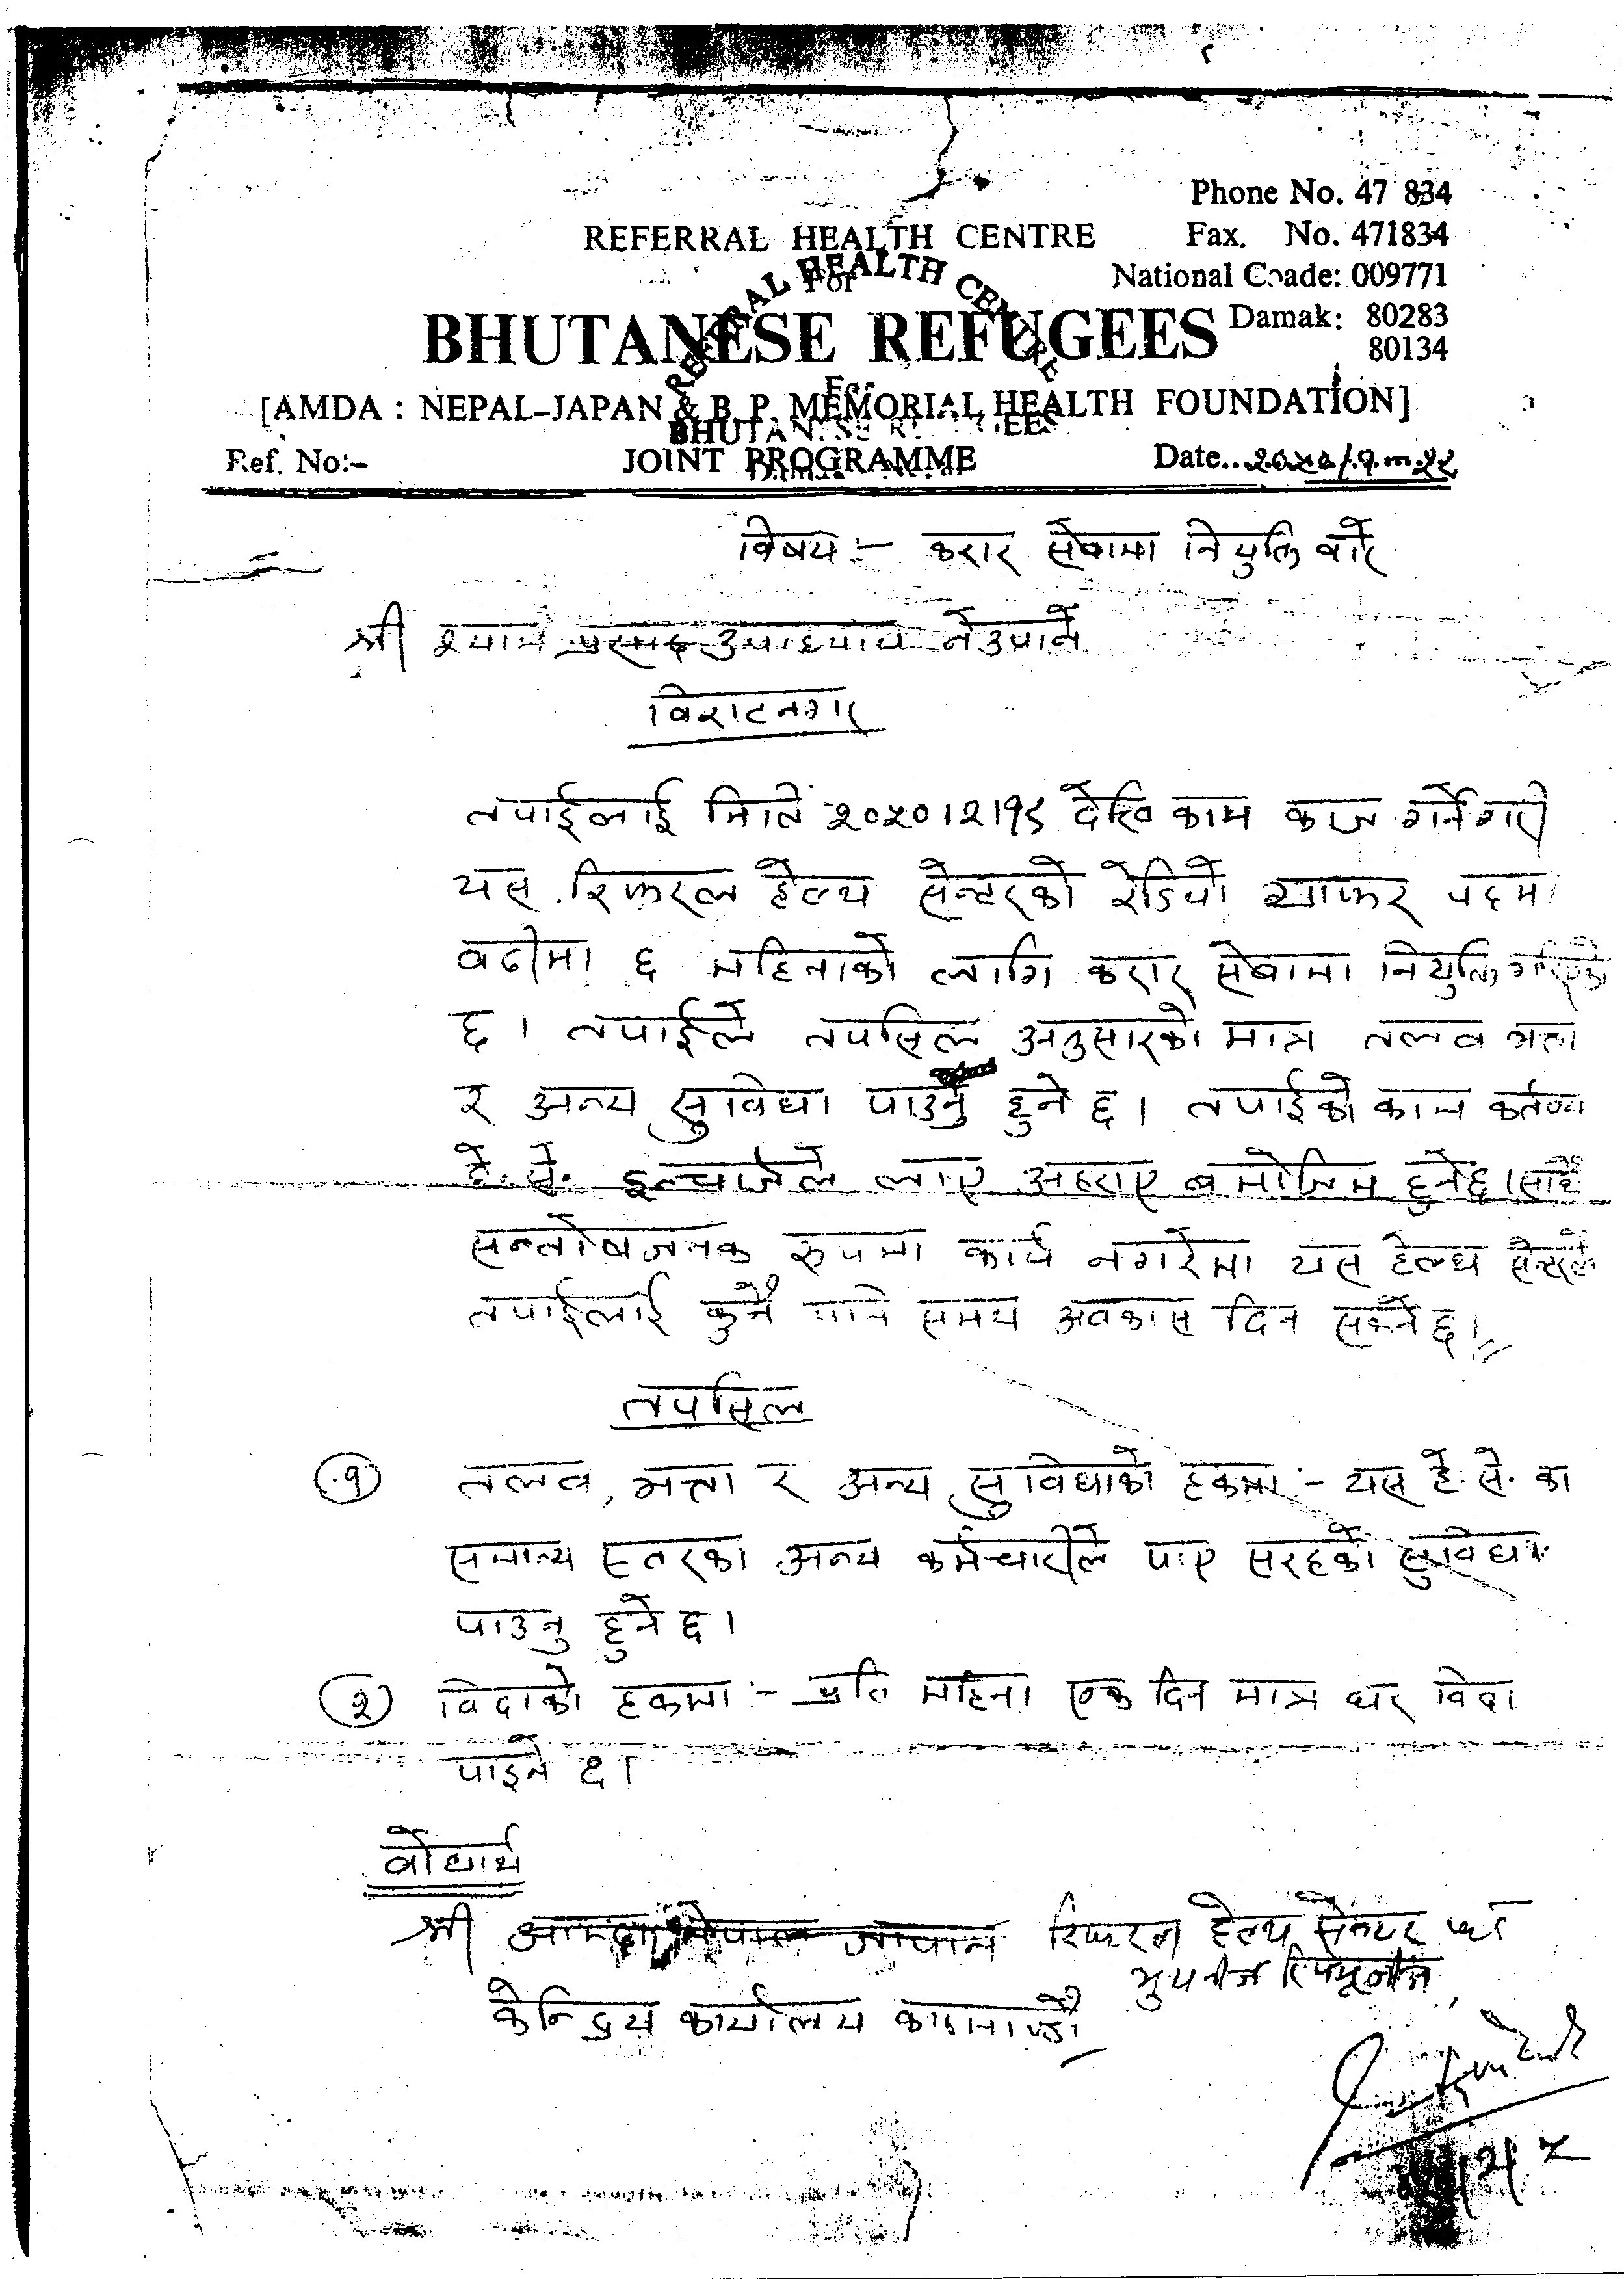 Phone No. 47 834
REFERRAL HEALTH CENTRE Fax. No. 471834
For National Coade: 009771
BHUTANESE REFUGEES Damak: 80283
80134
[AMDA : NEPAL-JAPAN & B. P. MEMORIAL HEALTH FOUNDATION]
Ref. No:- JOINT PROGRAMME Date...
REFERRAL HEALTH CENTRE
For
BHUTANESE REFUGEES
विषय :- करार सेवामा नियुक्ति बारे
श्री श्याम प्रसाद उपाध्याय नेउपाने
विराटनगर
तपाईलाई मिति २०५०।२।१८ देखि काम काज गर्ने गरी
यस रिफरल हेल्थ सेन्टरको रेडियो ग्राफर पदमा
बढीमा ६ महिनाको लागि करार सेवामा नियुक्ति गरिएको
छ । तपाईले तपसिल अनुसारको मात्र तलव भत्ता
र अन्य सुविधा पाउनु हुने छ । तपाईको काम कर्तव्य
हे. से. इन्चार्जले लाए अह्राए बमोजिम हुनेछ । साथै
सन्तोषजनक रुपमा कार्य नगरेमा यस हेल्थ सेन्टरले
तपाईलाई कुनै पनि समय अवकास दिन सक्नेछ ।
तपसिल
(१) तलव, भत्ता र अन्य सुविधाको हकमा :- यस हे. से. का
समान्य स्तरका अन्य कर्मचारीले पाए सरहको सुविधा
पाउनु हुने छ ।
(२) विदाको हकमा :- प्रति महिना एक दिन मात्र घर विदा
पाइने छ ।
वोधार्थ
श्री आम्दा नेपाल जापान रिफरल हेल्थ सेन्टर फर
भुटानीज रिफ्यूजीज
केन्द्रिय कार्यालय काठमाण्डौ